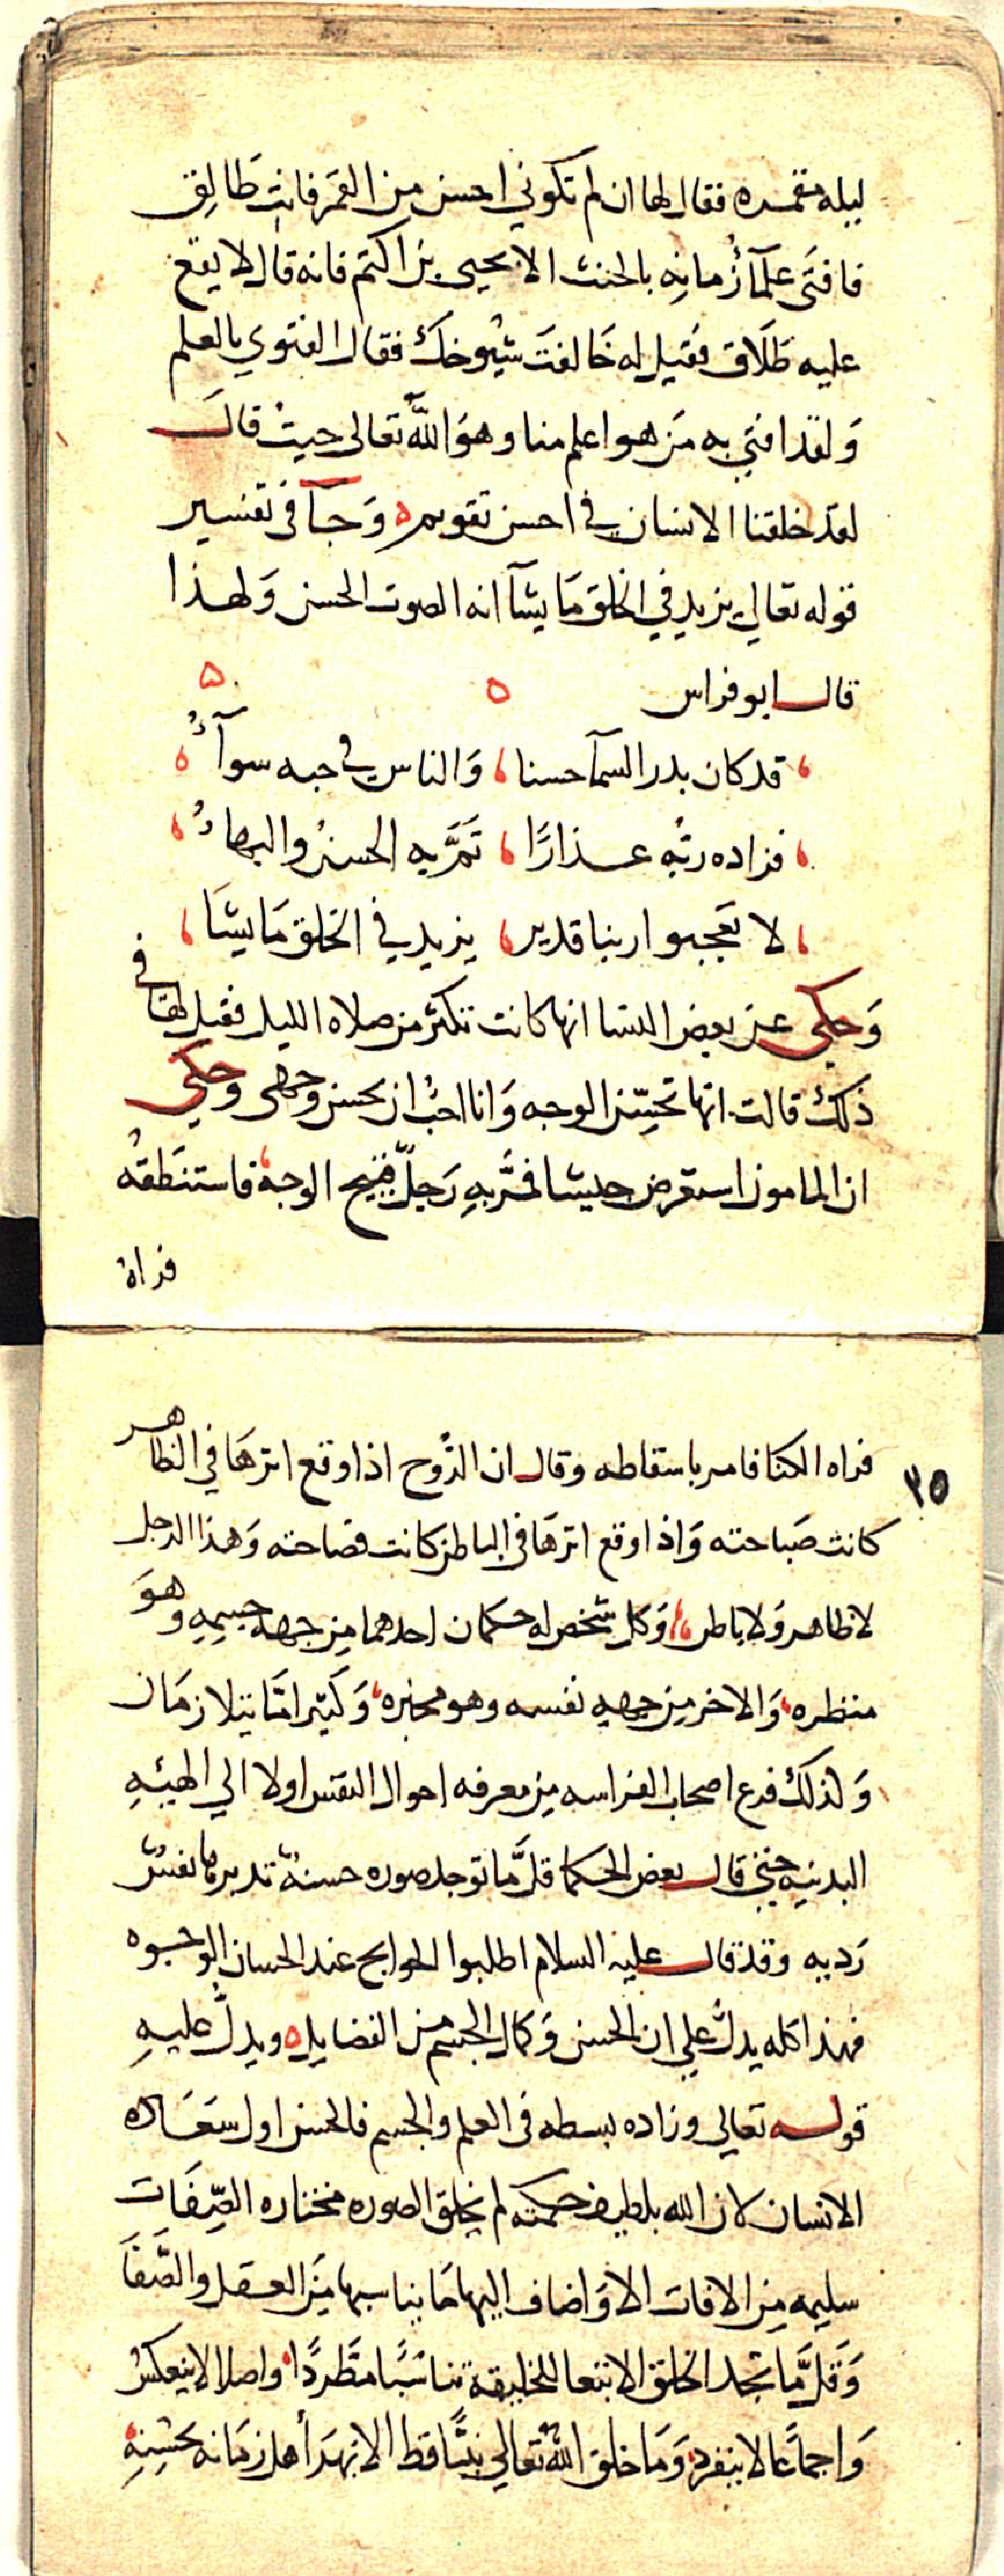 ليله مقمره فقال لها ان لم تكوني احسن من القمر فانت طالق
فافتى علمآ زمانِه بالحنث الا يحيى بن اكتم فانه قال لا يقع
عليه طَلَاق فقيل له خَالفتَ شيُوخكَ فقال الفتوي بالعلم
وَلقد افتي به مَن هو اعلم منا وهوَ اللهُ تعالى حيث قال
لقد خلقنا الانسان في احسن تقويم ه وَجآ في تفسير
قوله تعالي يزيد في الخلق مَا يشآ انه الصوت الحسن وَلهذا
قال ابو فراس
قد كان بدر السمآ حسنا، وَالناس في حبه سوآءُ
فزاده ربُه عذارًا، تَمَّ به الحسنُ والبهاءُ
لا تعجبوا ربنا قدير، يزيد في الخلق مَا يشَا
وَحكي عن بعض النسا انها كانت تكثر من صلاه الليل فقيل لها في
ذلك قالت انها تحسِّن الوجه وَانا احبُ ان يحسن وجهى وحكي
ان المامون استعرض جيشا فمَّر بهِ رَجلٌ قبيح الوجه فاستنَطقهُ
فراه
٢٥
فراه الكنا فامر باسقاطه وقال ان الرُّوح اذا وقع اثرهَا في الظاهر
كانت صَبَاحته وَاذا وقع اثرهَا في الباطن كانت فصَاحته وَهذا الرجل
لا ظاهر وَلا باطن وَكل شخص له حكمان احدهما مِن جهه جسمِهِ وهوَ
منظره وَالاخر مِن جهةِ نفسه وهو مخبره وَكثيرا مَّا يتلازمَان
وَلذلك فرع اصحاب الفراسه مِن معرفه احوال النفس اولا الي الهيئهِ
البدنيهِ حتي قال بعض الحكما قلَّ ما توجد صوره حسنهٌ تدبرها نفسٌ
رَديه وقد قال عليه السلام اطلبوا الحوايج عند الحسان الوجوه
فهذا كله يدلُّ علي ان الحسن وَكمال الجسم من الفضايل ه ويدلُ عليهِ
قوله تعالي وزاده بسطه في العلم والجسم فالحسن اول سعَاده
الانسان لان الله بلطيف حكمته لم يخلق الصوره مختاره الصِّفَات
سليمه مِن الافات الا وَاضاف اليها مَا يناسبها مِنَ العقل والصَّفَا
وَقلَّ مَا تجد الخلق الا تبعا للخليقة تناسُبًا مطَّردًا، واصلا لا ينعكسُ
وَاجماعَا لا ينفرد، وَمَا خلق اللهُ تعالي نبيًّا قط الا بهرَ أهل زمَانه بحسْنهِ